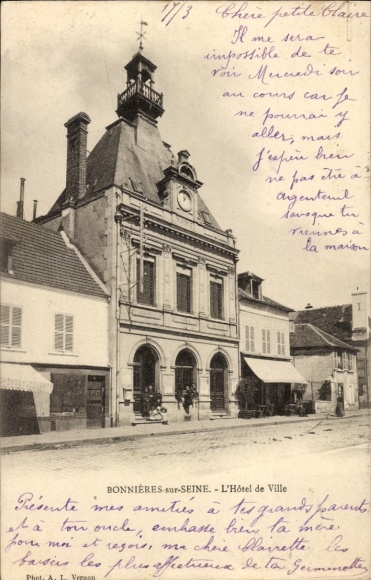 17/3 Chère petite Claire
Il me sera
impossible de te
voir Mercredi soir
au cours car je
ne pourrai y
aller, mais
j'espère bien
ne pas être à
argenteuil
lorsque tu
viennes à
la maison
BONNIÈRES-sur-SEINE. - L'Hôtel de Ville
Présente mes amitiés à tes grands parents
et à ton oncle, embrasse bien ta mère
pour moi et reçois, ma chère Clairette, les
baisers les plus affectueux de ta Germinette
Phot. A. L. Vernon